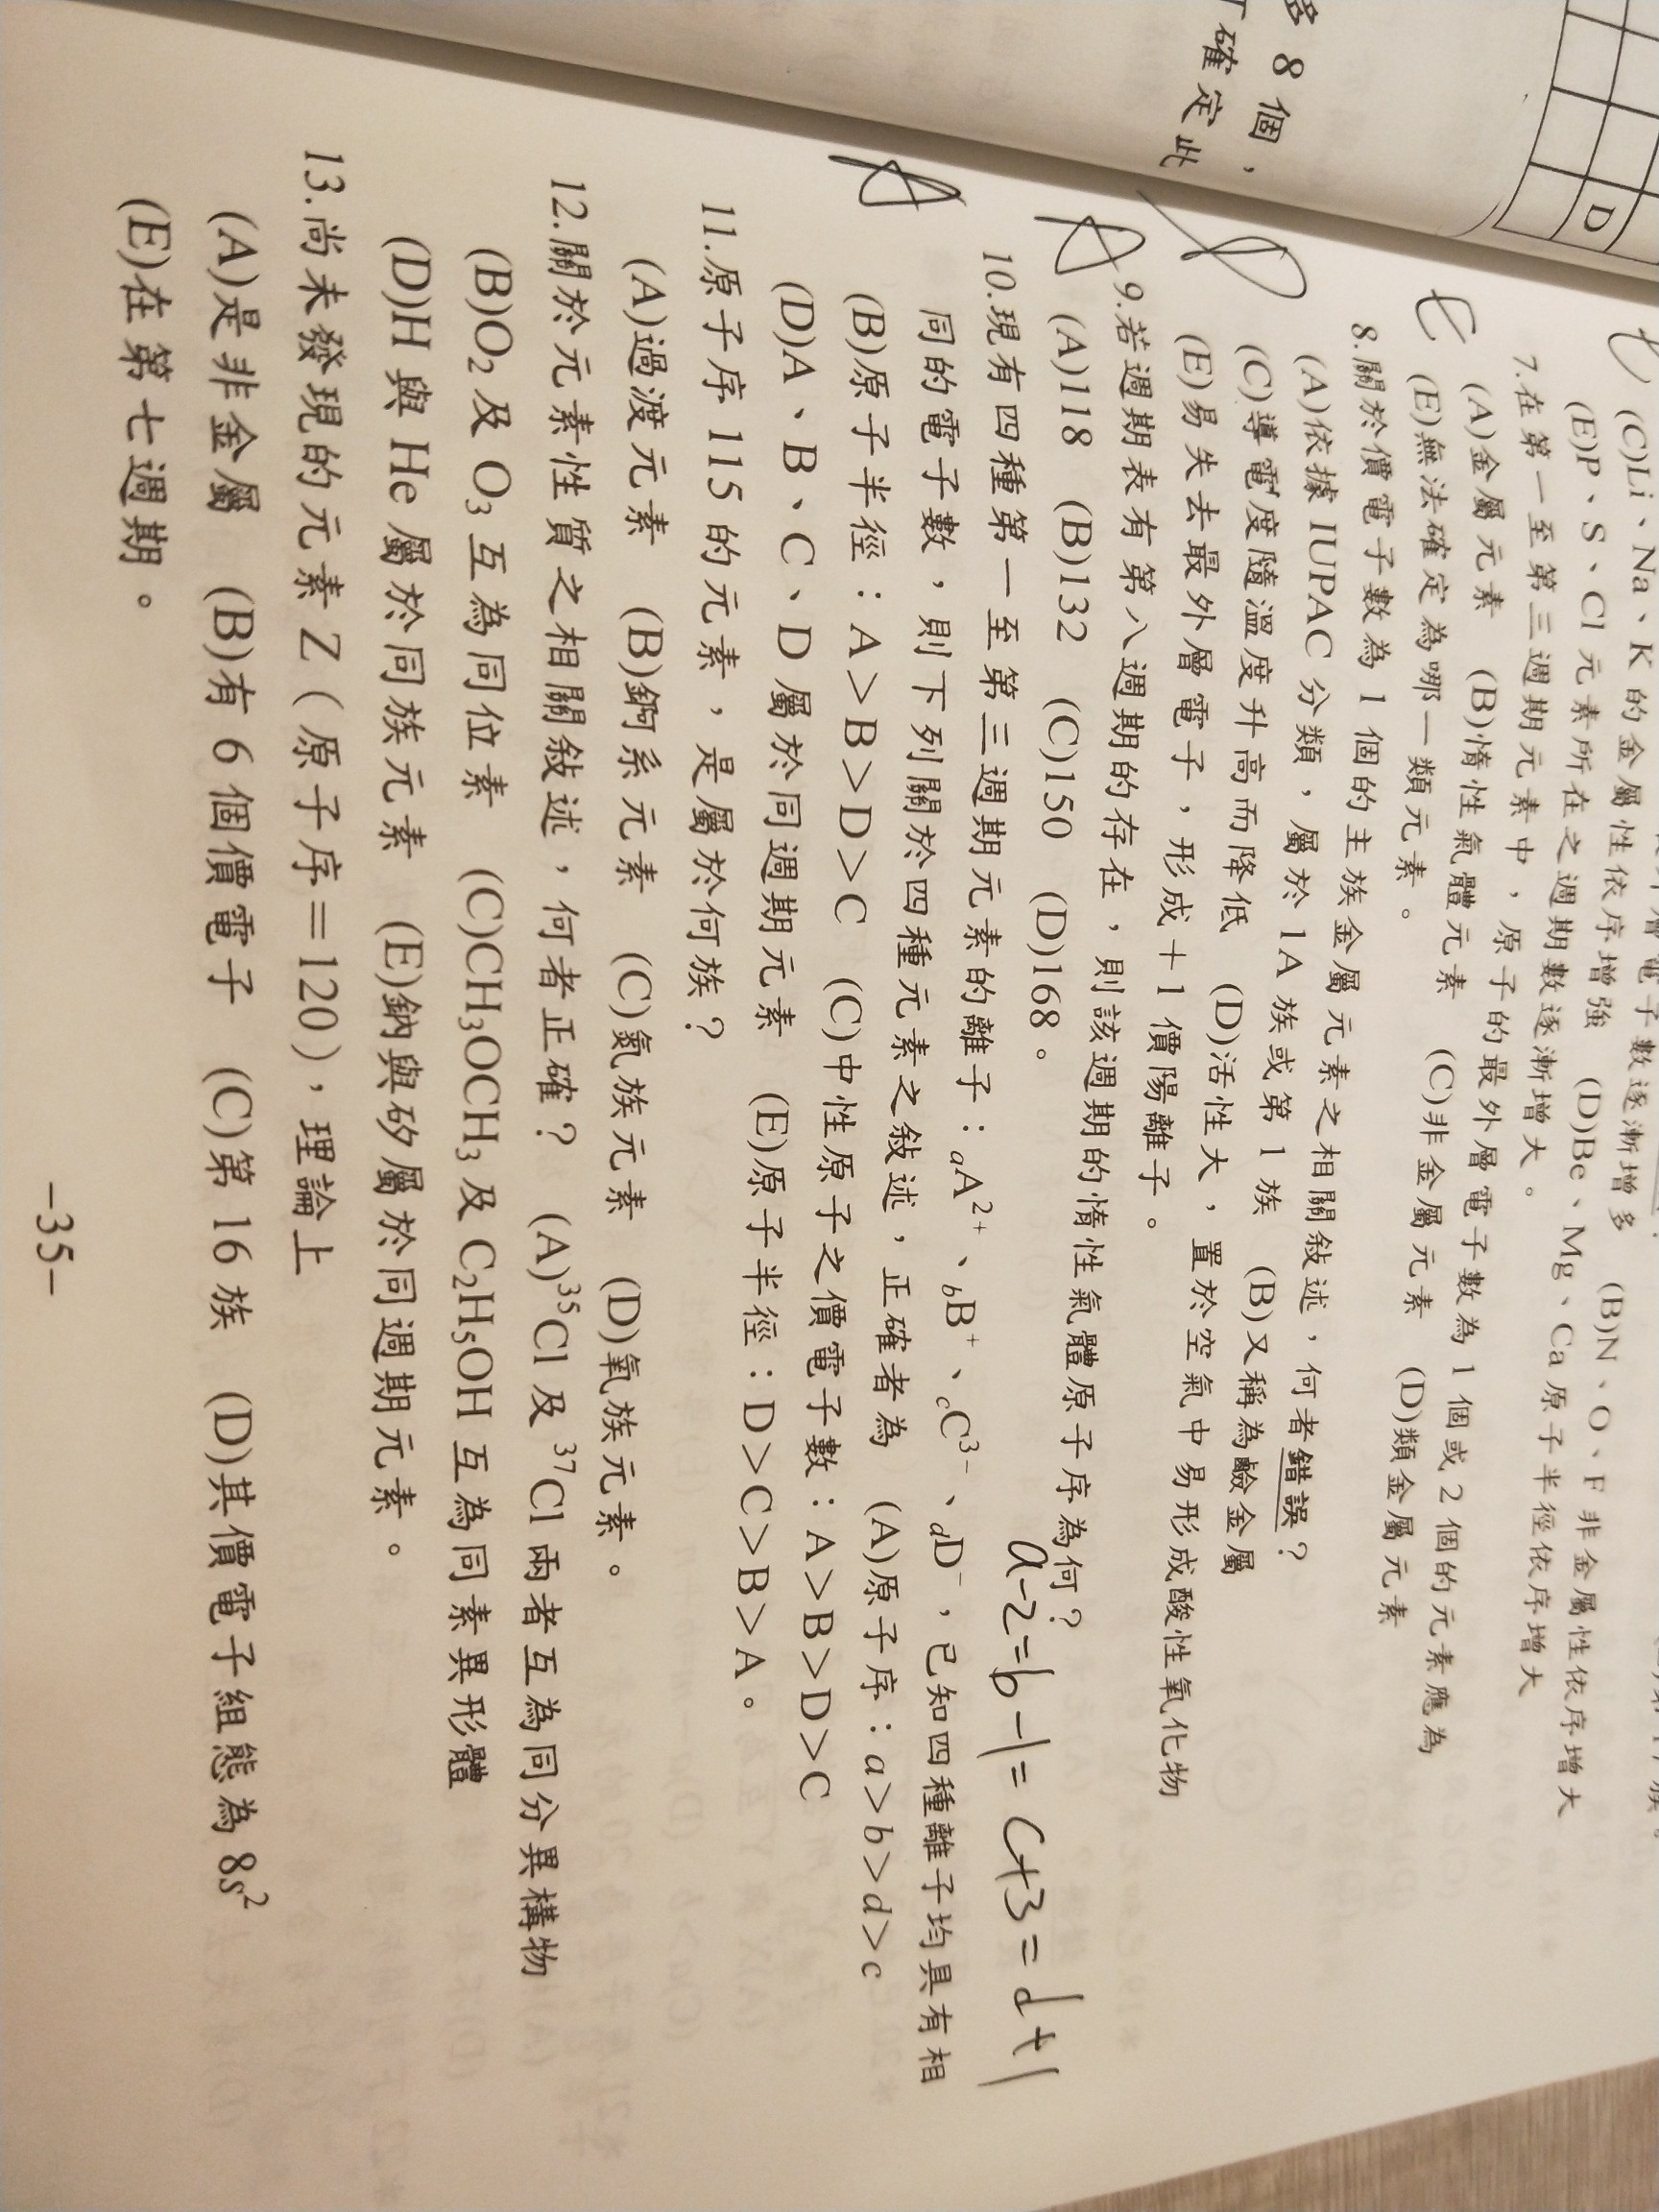 多 8 個,
確定此
D
(C)Li、Na、K 的金屬性依序增強 (D)Be、Mg、Ca 原子半徑依序增大
(B)N、O、F 非金屬性依序增大
(E)P、S、Cl 元素所在之週期數逐漸增大。
7.在第一至第三週期元素中,原子的最外層電子數為 1 個或 2 個的元素應為
(A)金屬元素 (B)惰性氣體元素 (C)非金屬元素 (D)類金屬元素
(E)無法確定為哪一類元素。
8.關於價電子數為 1 個的主族金屬元素之相關敘述,何者錯誤?
(A)依據 IUPAC 分類,屬於 1A 族或第 1 族 (B)又稱為鹼金屬
(C)導電度隨溫度升高而降低 (D)活性大,置於空氣中易形成酸性氧化物
(E)易失去最外層電子,形成+1 價陽離子。
9.若週期表有第八週期的存在,則該週期的惰性氣體原子序為何?
A
(A)118 (B)132 (C)150 (D)168。
a-2=b-1=c+3=d+1
10.現有四種第一至第三週期元素的離子:aA²⁺、bB⁺、cC³⁻、dD⁻,已知四種離子均具有相
A
同的電子數,則下列關於四種元素之敘述,正確者為 (A)原子序:a>b>d>c
(B)原子半徑:A>B>D>C (C)中性原子之價電子數:A>B>D>C
(D)A、B、C、D 屬於同週期元素 (E)原子半徑:D>C>B>A。
11.原子序 115 的元素,是屬於何族?
(A)過渡元素 (B)錒系元素 (C)氮族元素 (D)氧族元素。
12.關於元素性質之相關敘述,何者正確? (A)³⁵Cl 及 ³⁷Cl 兩者互為同分異構物
(B)O₂ 及 O₃ 互為同位素 (C)CH₃OCH₃ 及 C₂H₅OH 互為同素異形體
(D)H 與 He 屬於同族元素 (E)鈉與矽屬於同週期元素。
13.尚未發現的元素 Z(原子序=120),理論上
(A)是非金屬 (B)有 6 個價電子 (C)第 16 族 (D)其價電子組態為 8s²
(E)在第七週期。
-35-